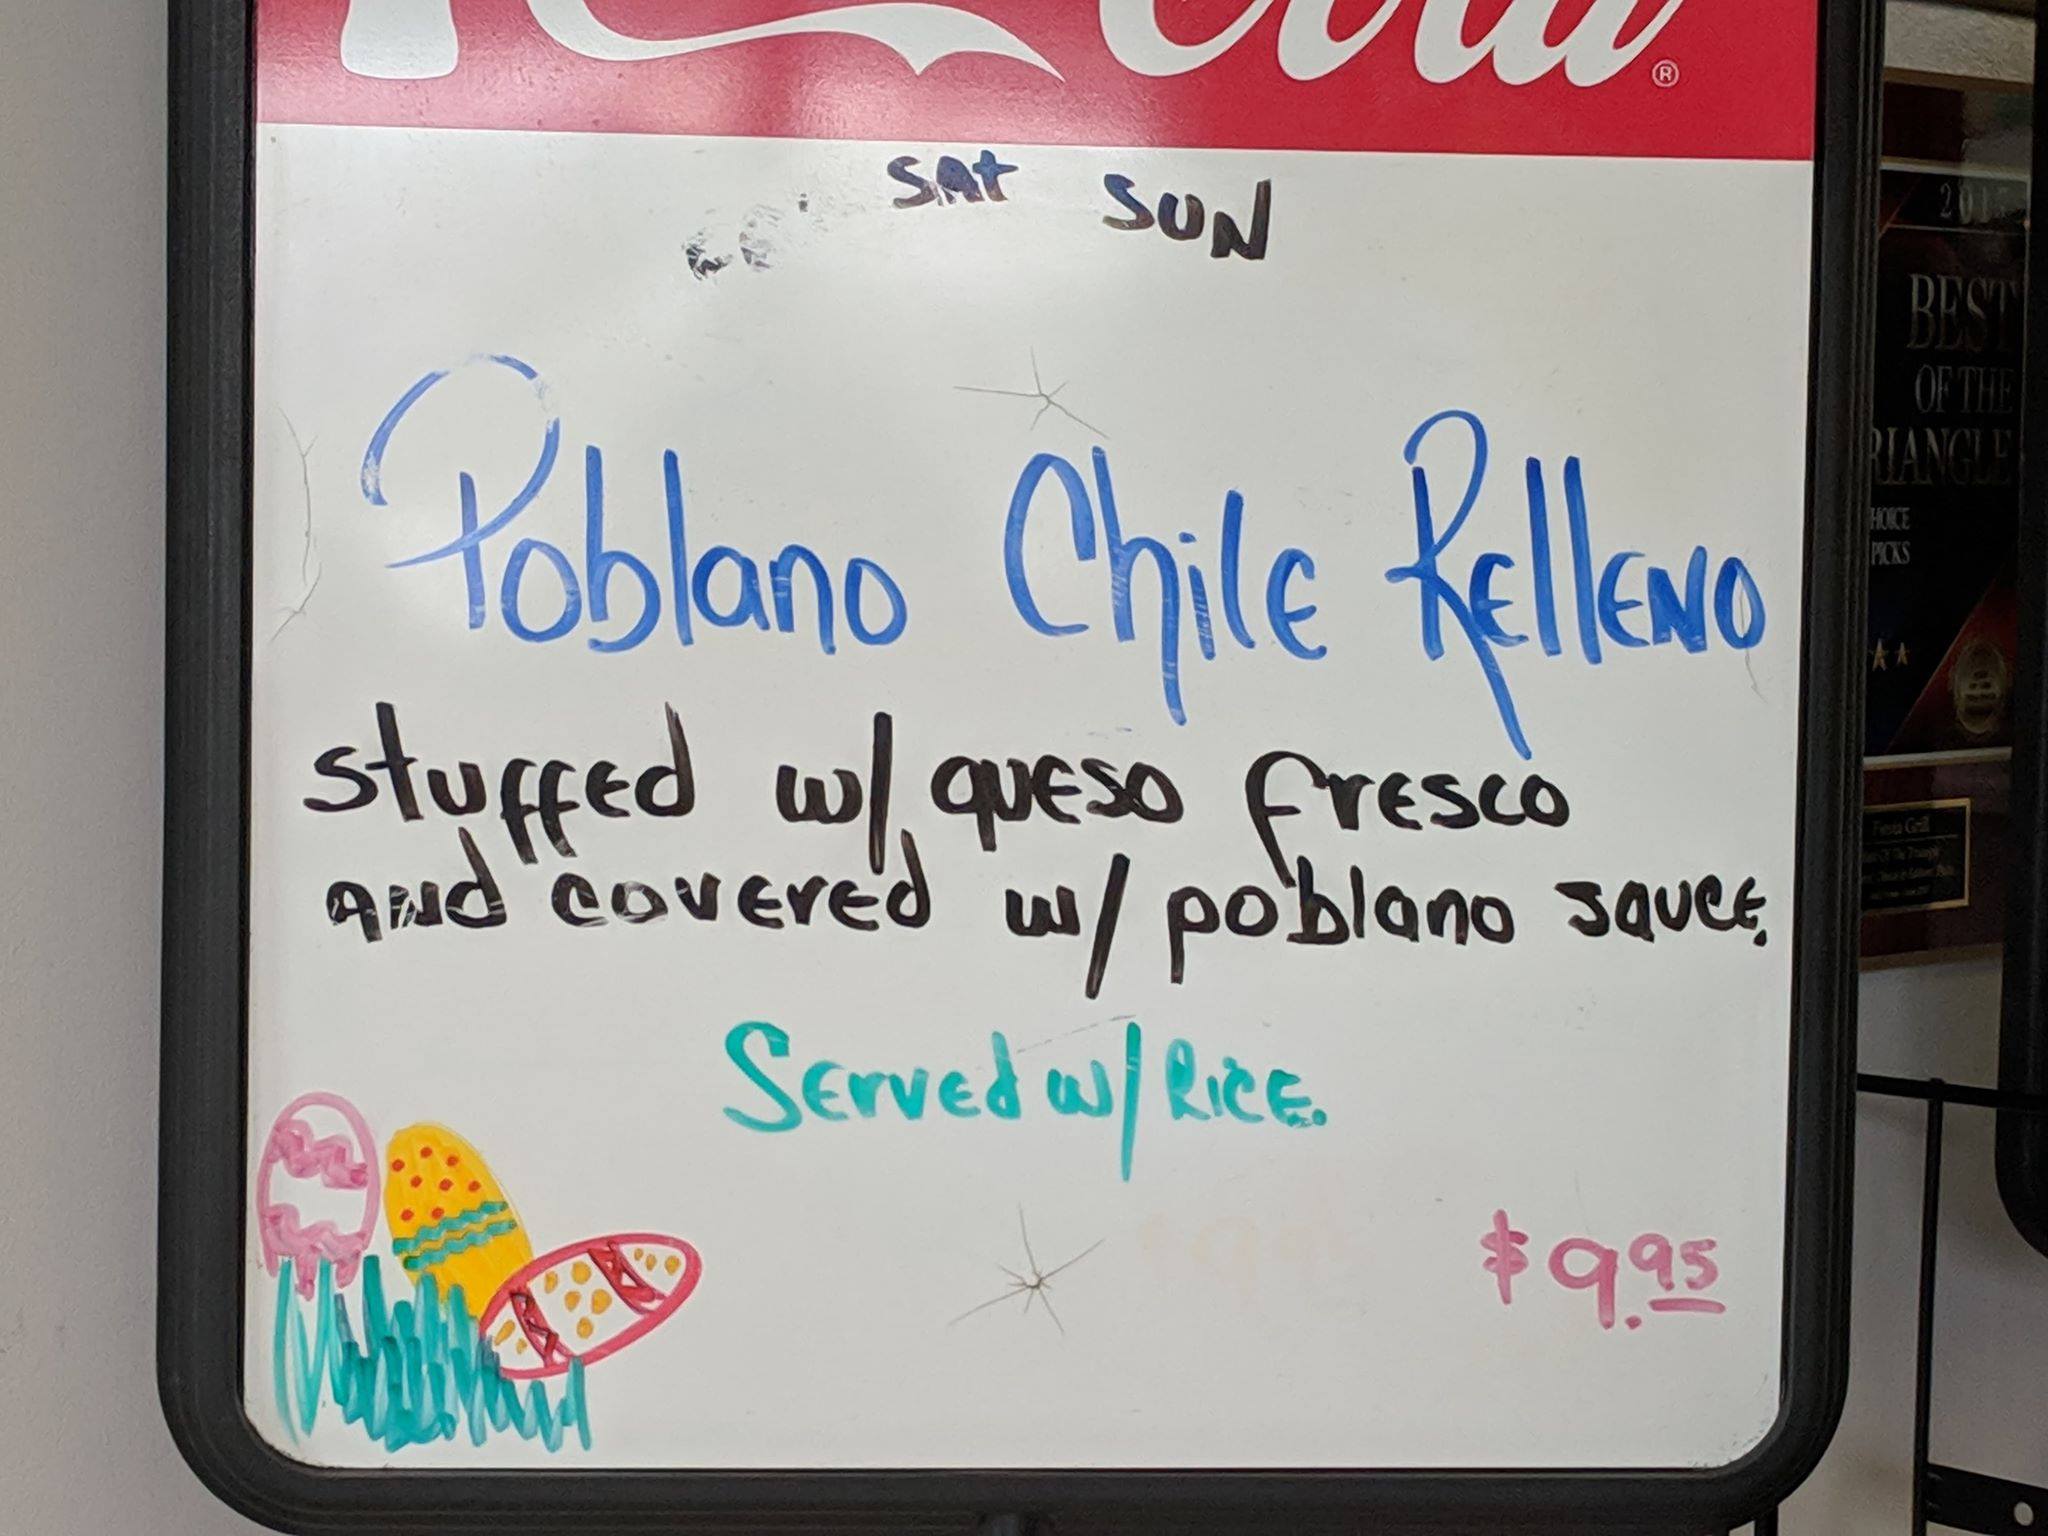 Cola®
SAt SUN
Poblano Chile Relleno
stuffed w/ queso fresco
and covered w/ poblano sauce.
Served w/ Rice.
$9.95
BEST
OF THE
RIANGLE
HOICE
PICKS
Fiesta Grill